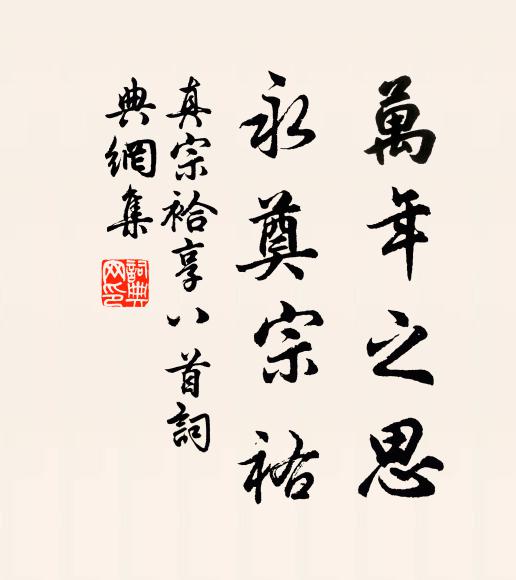 萬年之思
永奠宗祐
真宗袷享八首詞
典網集
詞典
网印